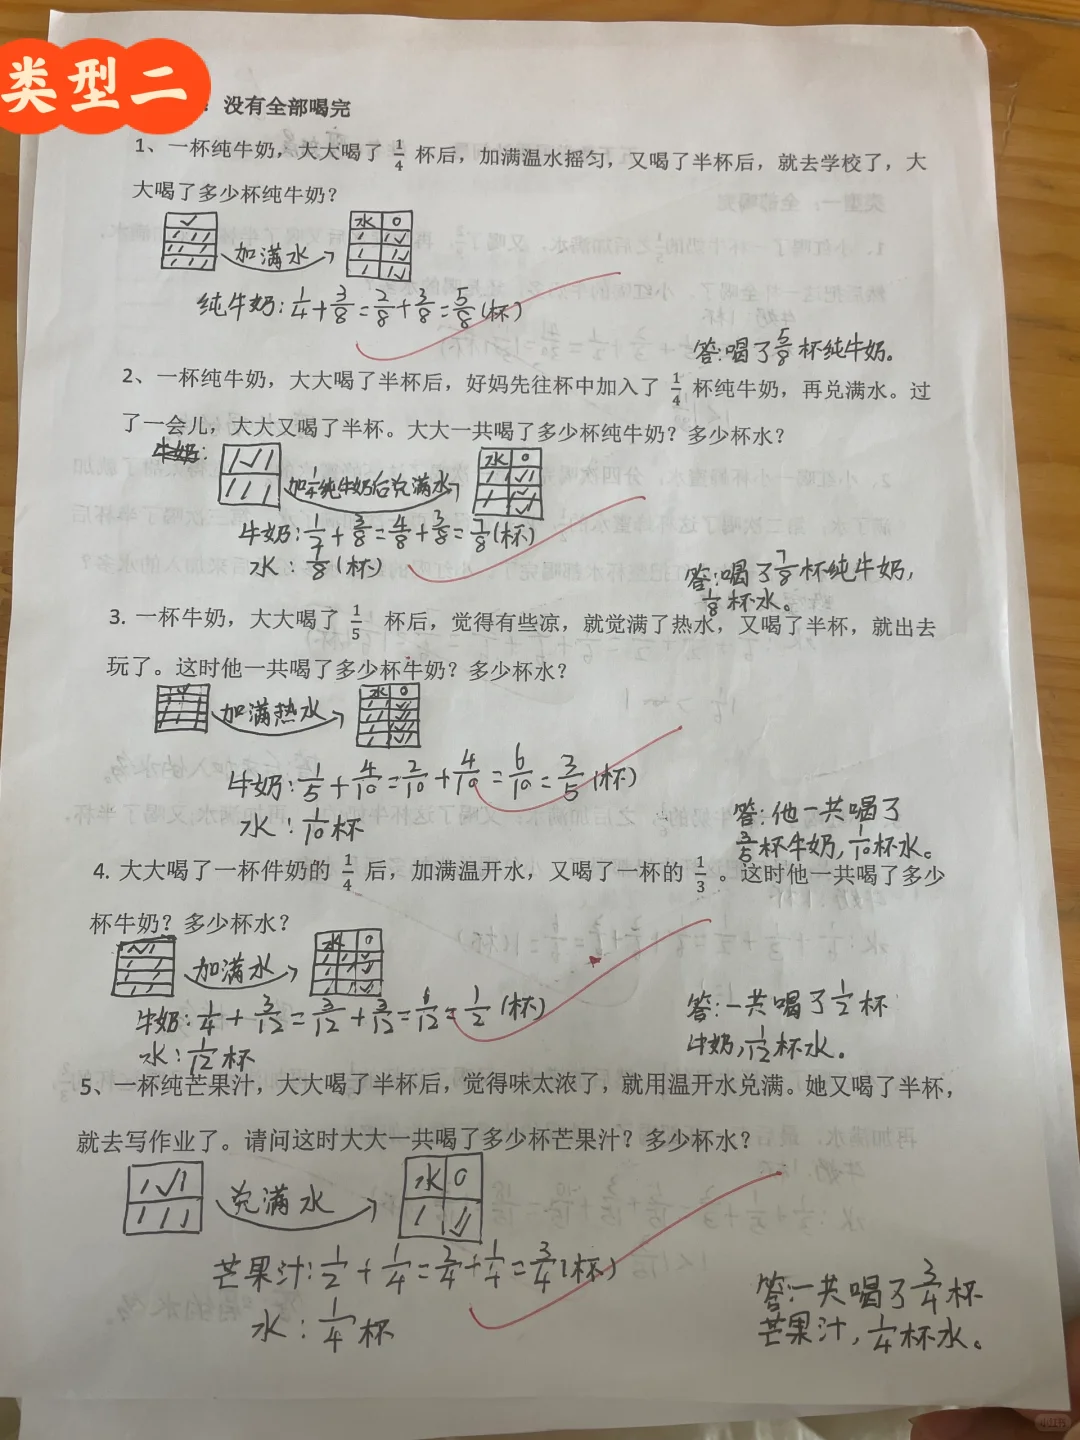 类型二
没有全部喝完
1、一杯纯牛奶，大大喝了 1/4 杯后，加满温水摇匀，又喝了半杯后，就去学校了，大
大喝了多少杯纯牛奶？
加满水
水 0
纯牛奶:1/4+3/8=2/8+3/8=5/8(杯)
答:喝了5/8杯纯牛奶。
2、一杯纯牛奶，大大喝了半杯后，好妈先往杯中加入了 1/4 杯纯牛奶，再兑满水。过
了一会儿，大大又喝了半杯。大大一共喝了多少杯纯牛奶？多少杯水？
加1/4纯牛奶后兑满水
水 0
牛奶:1/2+3/8=4/8+3/8=7/8(杯)
水:1/8(杯)
答:喝了7/8杯纯牛奶,
1/8杯水。
3. 一杯牛奶，大大喝了 1/5 杯后，觉得有些凉，就觉满了热水，又喝了半杯，就出去
玩了。这时他一共喝了多少杯牛奶？多少杯水？
加满热水
水 0
牛奶:1/5+4/10=2/10+4/10=6/10=3/5(杯)
水:1/10杯
答:他一共喝了
3/5杯牛奶,1/10杯水。
4. 大大喝了一杯件奶的 1/4 后，加满温开水，又喝了一杯的 1/3 。这时他一共喝了多少
杯牛奶？多少杯水？
加满水
水 0
牛奶:1/4+3/12=3/12+3/12=6/12=1/2(杯)
水:1/12杯
答:一共喝了1/2杯
牛奶,1/12杯水。
5、一杯纯芒果汁，大大喝了半杯后，觉得味太浓了，就用温开水兑满。她又喝了半杯，
就去写作业了。请问这时大大一共喝了多少杯芒果汁？多少杯水？
兑满水
水 0
芒果汁:1/2+1/4=2/4+1/4=3/4(杯)
水:1/4杯
答:一共喝了3/4杯
芒果汁,1/4杯水。